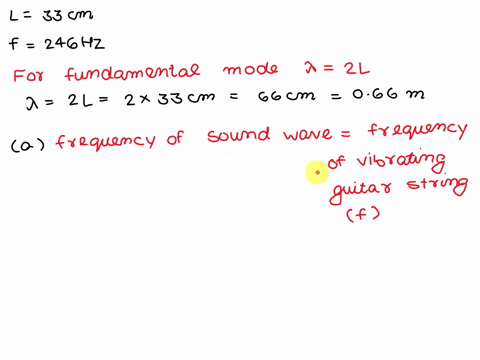 L = 33 cm
f = 246 Hz
For fundamental mode λ = 2L
λ = 2L = 2 × 33 cm = 66 cm = 0.66 m
(a) frequency of sound wave = frequency
of vibrating
guitar string
(f)